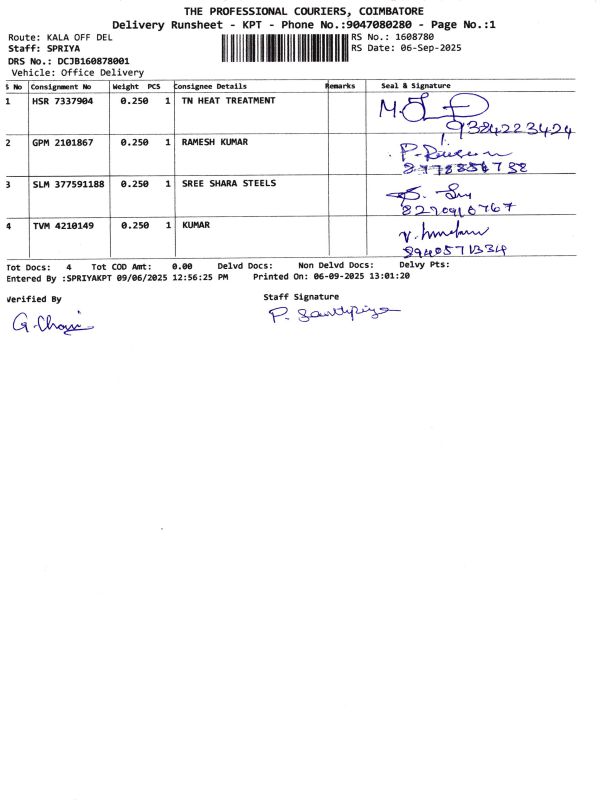 THE PROFESSIONAL COURIERS, COIMBATORE
Delivery Runsheet - KPT - Phone No.:9047080280 - Page No.:1
Route: KALA OFF DEL RS No.: 1608780
Staff: SPRIYA RS Date: 06-Sep-2025
DRS No.: DCJB160878001
Vehicle: Office Delivery
S No Consignment No Weight PCS Consignee Details Remarks Seal & Signature
1 HSR 7337904 0.250 1 TN HEAT TREATMENT
9384223424
2 GPM 2101867 0.250 1 RAMESH KUMAR
3 SLM 377591188 0.250 1 SREE SHARA STEELS
8220910767
4 TVM 4210149 0.250 1 KUMAR
Tot Docs: 4 Tot COD Amt: 0.00 Delvd Docs: Non Delvd Docs: Delvy Pts:
Entered By :SPRIYAKPT 09/06/2025 12:56:25 PM Printed On: 06-09-2025 13:01:20
Verified By Staff Signature